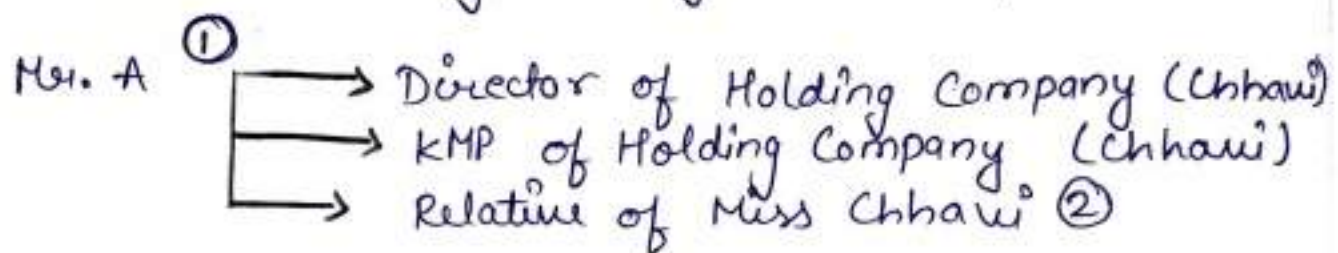 Mr. A ① → Director of Holding Company (Chhavi)
→ KMP of Holding Company (Chhavi)
→ Relative of Miss Chhavi ②